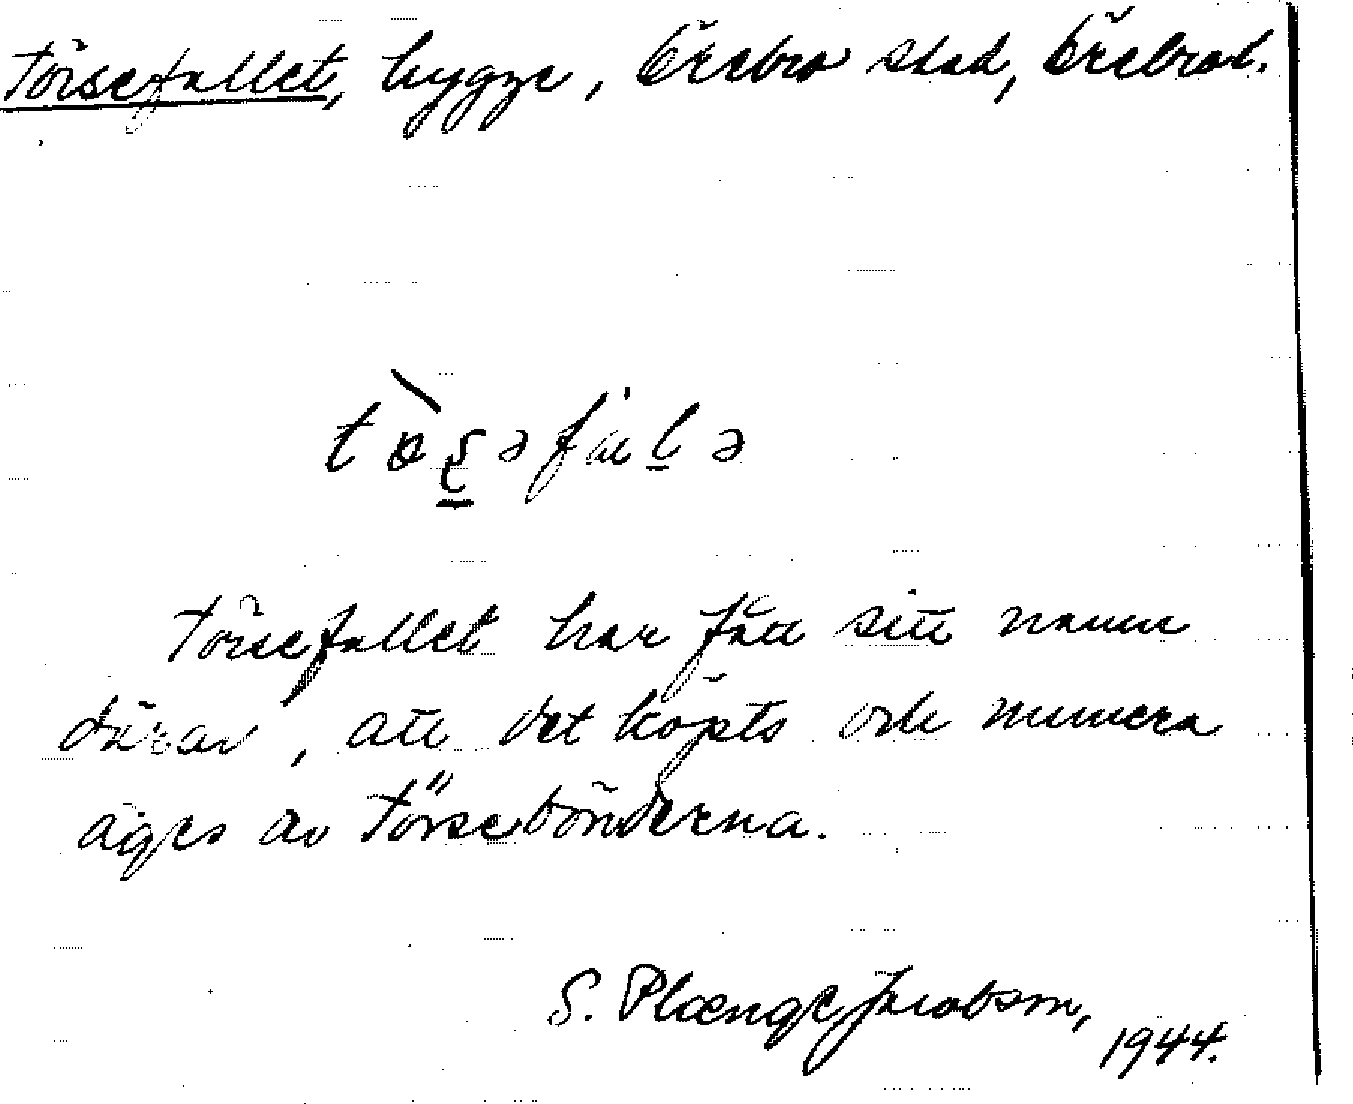 Törsefallet, bygge, Örebro stad, Örebrol.
Törsefallet har fått sitt namn
därav, att det köpts och numera
äges av Törsebönderna.
S. Plænge Jacobson,
1944.